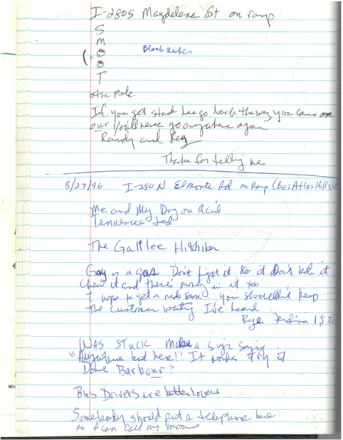 I-280S Magdelena Ext on ramp
S
M
O Black water
O
T
other Pole
If you get stuck here go back the way you came or
our 1/2 will never go anywhere again
Randy and Reg
Thanks for telling me
8/27/96 I-280 N El Monte Rd on Ramp (Los Altos Hills)
Me and My Dog on Acid
Tennessee Jed
The Galilee Hitchhiker
Gay in a gas Don't
it and there's money in it too
I hope to get a ride soon you shouldn't keep
the customer waiting I've heard
Bye
WAS STUCK Make a sign saying
"Anywhere but here!" It works try it
Dave Barbour?
Bus Drivers are better lovers
Somebody should put a telephone here
so I can call my mom